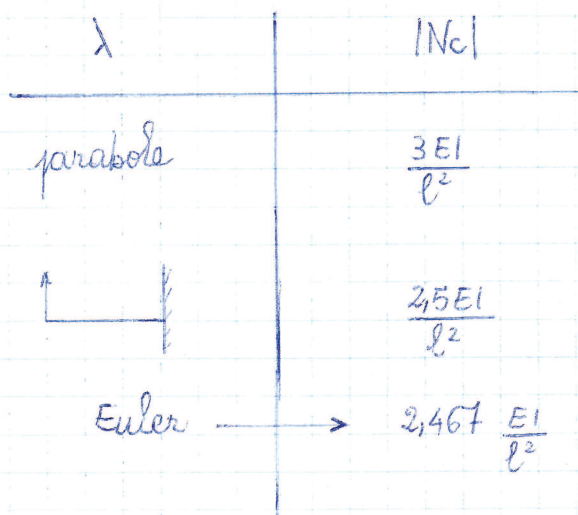 λ |Nc|
parabole 3EI/ℓ²
2,5EI/ℓ²
Euler → 2,467 EI/ℓ²